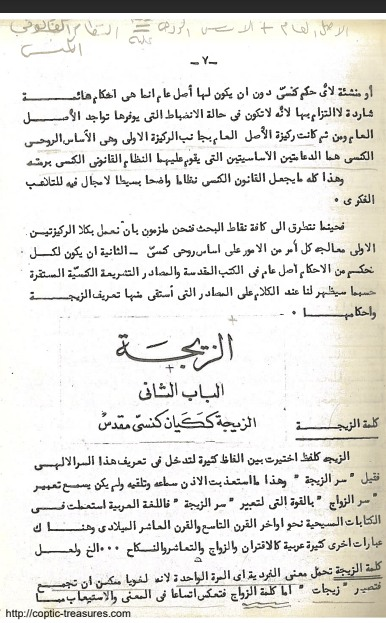 الاصل العام + الاساس الروحى = النظام القانونى
عليه
الكنسى
-٧-
أو منشئة لأى حكم كنسى دون ان يكون لها أصل عام انما هى احكام هائـــــة
شاردة لا التزام بها لأنه لا تكون فى حالة الانضباط التى يوفرها تواجد الأصـــل
العام ومن ثم كانت ركيزة الأصل العام بجانب الركيزة الاولى وهى الأساس الروحسى
الكنسى هما الدعامتين الاساسيتين التى يقوم عليهما النظام القانونى الكنسى برمته
وهذا كله ما يجعل القانون الكنسى نظاما واضحا بسيطا لا مجال فيه للتلاعب
الفكرى ٠
فحينما نتطرق الى كافة نقاط البحث فنحن ملزمون بأن نعمل بكلا الركيزتيــن
الاولى معالجة كل أمر من الامور على اساس روحى كنسى – الثانية ان يكون لكـــل
حكم من الاحكام أصل عام فى الكتب المقدسة والمصادر التشريعة الكنسية المستقرة
حسبما سيظهر لنا عند الكلام على المصادر التى أستقى منها تعريف الزيجـــة
واحكامهـــا ٠
الزيجـة
الباب الثانى
الزيجة ككيان كنسى مقدس
كلمة الزيجـــة
الزيجه كلفظ اختيرت بين الفاظ كثيرة لتدخل فى تعريف هذا السر الالهى
فقيل " سر الزيجة " وهذا ما استعذبت الاذن سماعه وتلقيه ولم يكن يسمح تعبير
" سر الزواج " بالقوة التى لتعبير " سر الزيجة " فاللغة العربية استعملت فـــى
الكتابات المسيحية نحو اواخر القرن التاسع والقرن العاشر الميلادى وهنـــاك
عبارات أخرى كثيرة عربية كالاقتران والزواج والتعاشر والنكاح ٠٠٠ الخ ولعـــل
كلمة الزيجة تحمل معنى الفردية اى المرة الواحدة لانه لغويا ممكـن ان تجمـــع
فتصير " زيجات " أما كلمة الزواج فتعكس اتساعا فى المعنى والاستيعاب ممـــا
http://coptic-treasures.com